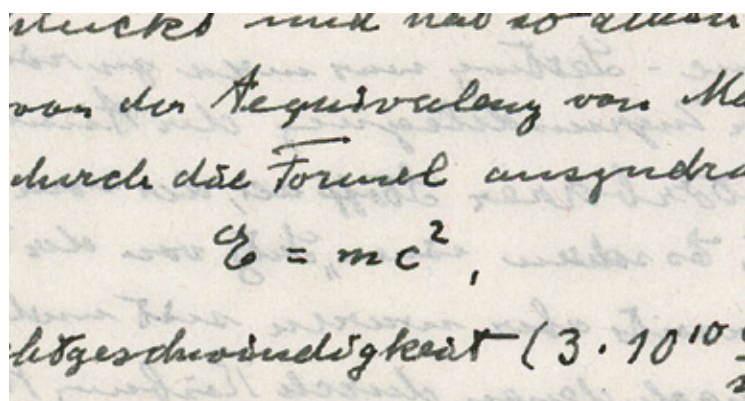 und hat so
von der Aequivalenz von
durch die Formel auszudrü
E = mc²,
chtgeschwindigkeit (3 . 10¹⁰